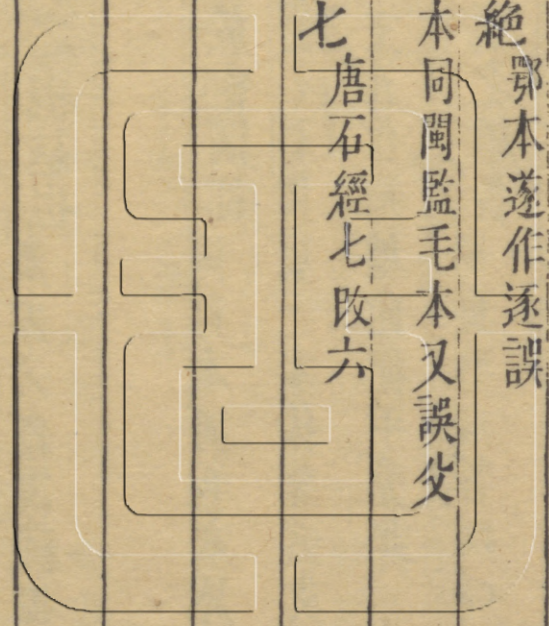 絶鄂本遂作逐誤
本同閩監毛本又誤父
七唐石經七改六